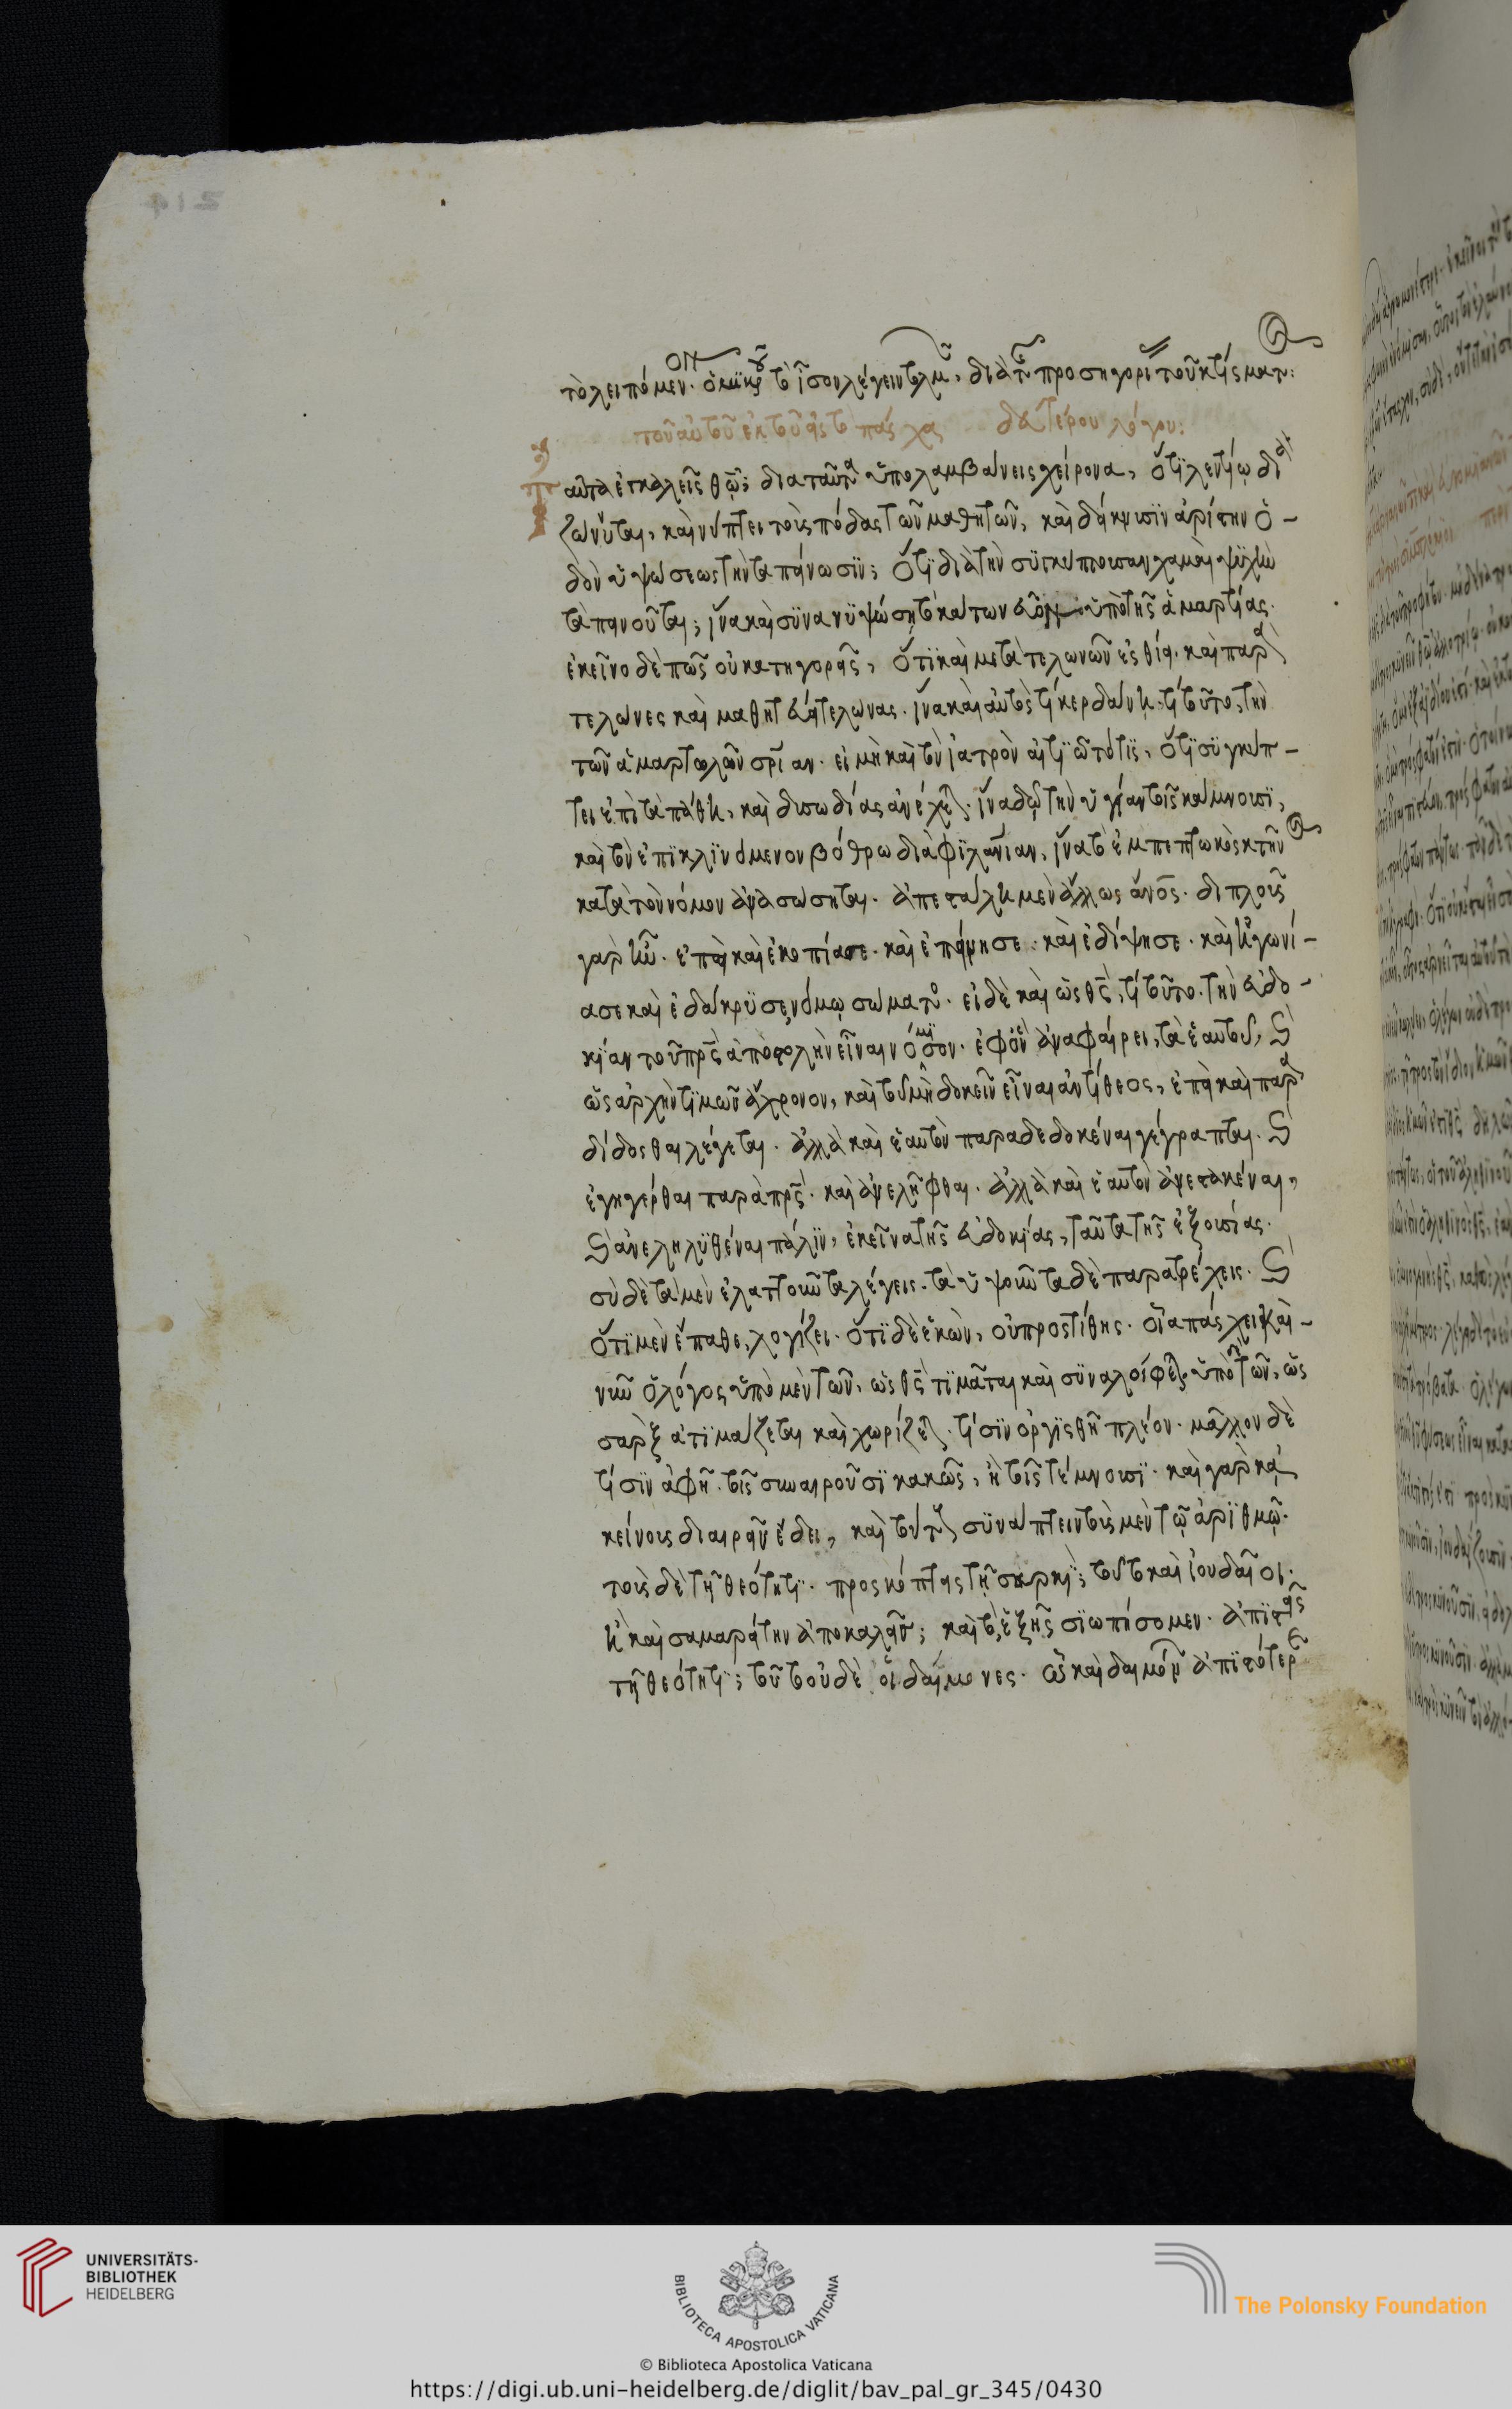 τὸ λειπόμεν· τὸ ἴσον λέγειν τολμᾶ, διὰ τ προσηγορί τοῦ κτίσματ:
τοῦ αὐτοῦ ἐκ τοῦ εἰς τὸ πάσχα δευτέρου λόγου:
ταῦτα ἐγκαλεῖς θῶ; δια ταῦτα ὑπολαμβάνεις χείρονα, ὅτι λεντίω δια
ζώνυται, καὶ νίπτει τοὺς πόδας τῶν μαθητῶν, καὶ δείκνυσιν ἀρίστην ὁ-
δὸν ὑψώσεως τὴν ταπείνωσιν; ὅτι διὰ τὴν συγκύπτουσαν χαμαὶ ψυχὴν
ταπεινοῦται; ἵνα καὶ συνανυψώση τὸ κάτω νεῦον ὑπὸ τῆς ἁμαρτίας·
ἐκεῖνο δὲ πῶς οὐ κατηγορεῖς, ὅτι καὶ μετὰ τελωνῶν ἐσθίει· καὶ παρὰ
τελώνες καὶ μαθητεύει τελώνας· ἵνα καὶ αὐτὸς τί κερδάνη· τί τοῦτο, τὴν
τῶν ἁμαρτωλῶν σρίαν· εἰ μὴ καὶ τὸν ἰατρὸν αἰτιῶτό τις, ὅτι συγκύπ-
τει ἐπὶ τὰ πάθη, καὶ δυσωδίας ἀνέχεται· ἵνα δῶ τὴν ὑγίαν τοῖς κάμνουσι,
καὶ τὸν ἐπικλινόμενον βόθρω διὰ φιλανίαν, ἵνα τὸ ἐμπεπτωκὸς κτῆν
κατὰ τὸν νόμον ἀνασώσηται· ἀπεστάλη μὲν ἀλλ ὡς ἄνος· διπλοῦς
γαρ ἦν· ἐπεὶ καὶ ἐκοπίασε· καὶ ἐπείνησε· καὶ ἐδίψησε· καὶ ἠγωνί-
ασε καὶ ἐδάκρυσε νόμω σώματο· εἰ δὲ καὶ ὡς θς, τί τοῦτο· τὴν εὐδο-
κίαν τοῦ πρς ἀποστολὴν εἶναι νόμισον· ἐφ ὃν ἀναφαίρει, τὰ ἑαυτοῦ, καὶ
ὡς ἀρχὴν τιμῶν ἄχρονον, καὶ τοῦ μὴ δοκεῖν εἶναι ἀντίθεος, ἐπεὶ καὶ παρα
δίδοσθαι λέγεται· ἀλλὰ καὶ ἑαυτὸν παραδεδοκέναι γέγραπται· καὶ
ἐγηγέρθαι παρὰ πρς· καὶ ἀνελῆφθαι· ἀλλὰ καὶ ἑαυτὸν ἀνεστακέναι,
καὶ ἀνεληλυθέναι πάλιν, ἐκεῖνα τῆς εὐδοκίας, ταῦτα τῆς ἐξουσίας·
σὺ δὲ τὰ μὲν ἐλαττοῦντα λέγεις· τὰ ὑψοῦντα δὲ παρατρέχεις· καὶ
ὅτι μὲν ἔπαθε, λογίζει· ὅτι δὲ ἑκὼν, οὐ προστίθης· οἷα πάσχει καὶ
νῦν ὁ λόγος ὑπὸ μὲν τῶν, ὡς θς τιμᾶται καὶ συναλοίφεται· ὑπὸ τῶν, ὡς
σαρξ ἀτιμάζεται καὶ χωρίζεται· τίσιν ὀργισθῆ πλέον· μᾶλλον δὲ
τίσιν ἀφῆ· τοῖς συναιροῦσι κακῶς, ἢ τοῖς τέμνουσι· καὶ γὰρ κα
κείνους διαιρεῖν ἔδει, καὶ τούτους συνάπτειν τοὺς μὲν τῶ ἀριθμῶ·
τοὺς δὲ τῆ θεότητι· προσκόπτεις τῆ σαρκί; τοῦτο καὶ ἰουδαῖοι·
ἢ καὶ σαμαρείτην ἀποκαλεῖς; καὶ τὰ ἑξῆς σιωπήσομεν· ἀπιστεῖς
τῆ θεότητι; τοῦτο οὐδὲ οἱ δαίμονες· ὦ καὶ δαιμόν ἀπιστότερ
UNIVERSITÄTS-
BIBLIOTHEK
HEIDELBERG
BIBLIOTECA APOSTOLICA VATICANA
The Polonsky Foundation
© Biblioteca Apostolica Vaticana
https://digi.ub.uni-heidelberg.de/diglit/bav_pal_gr_345/0430